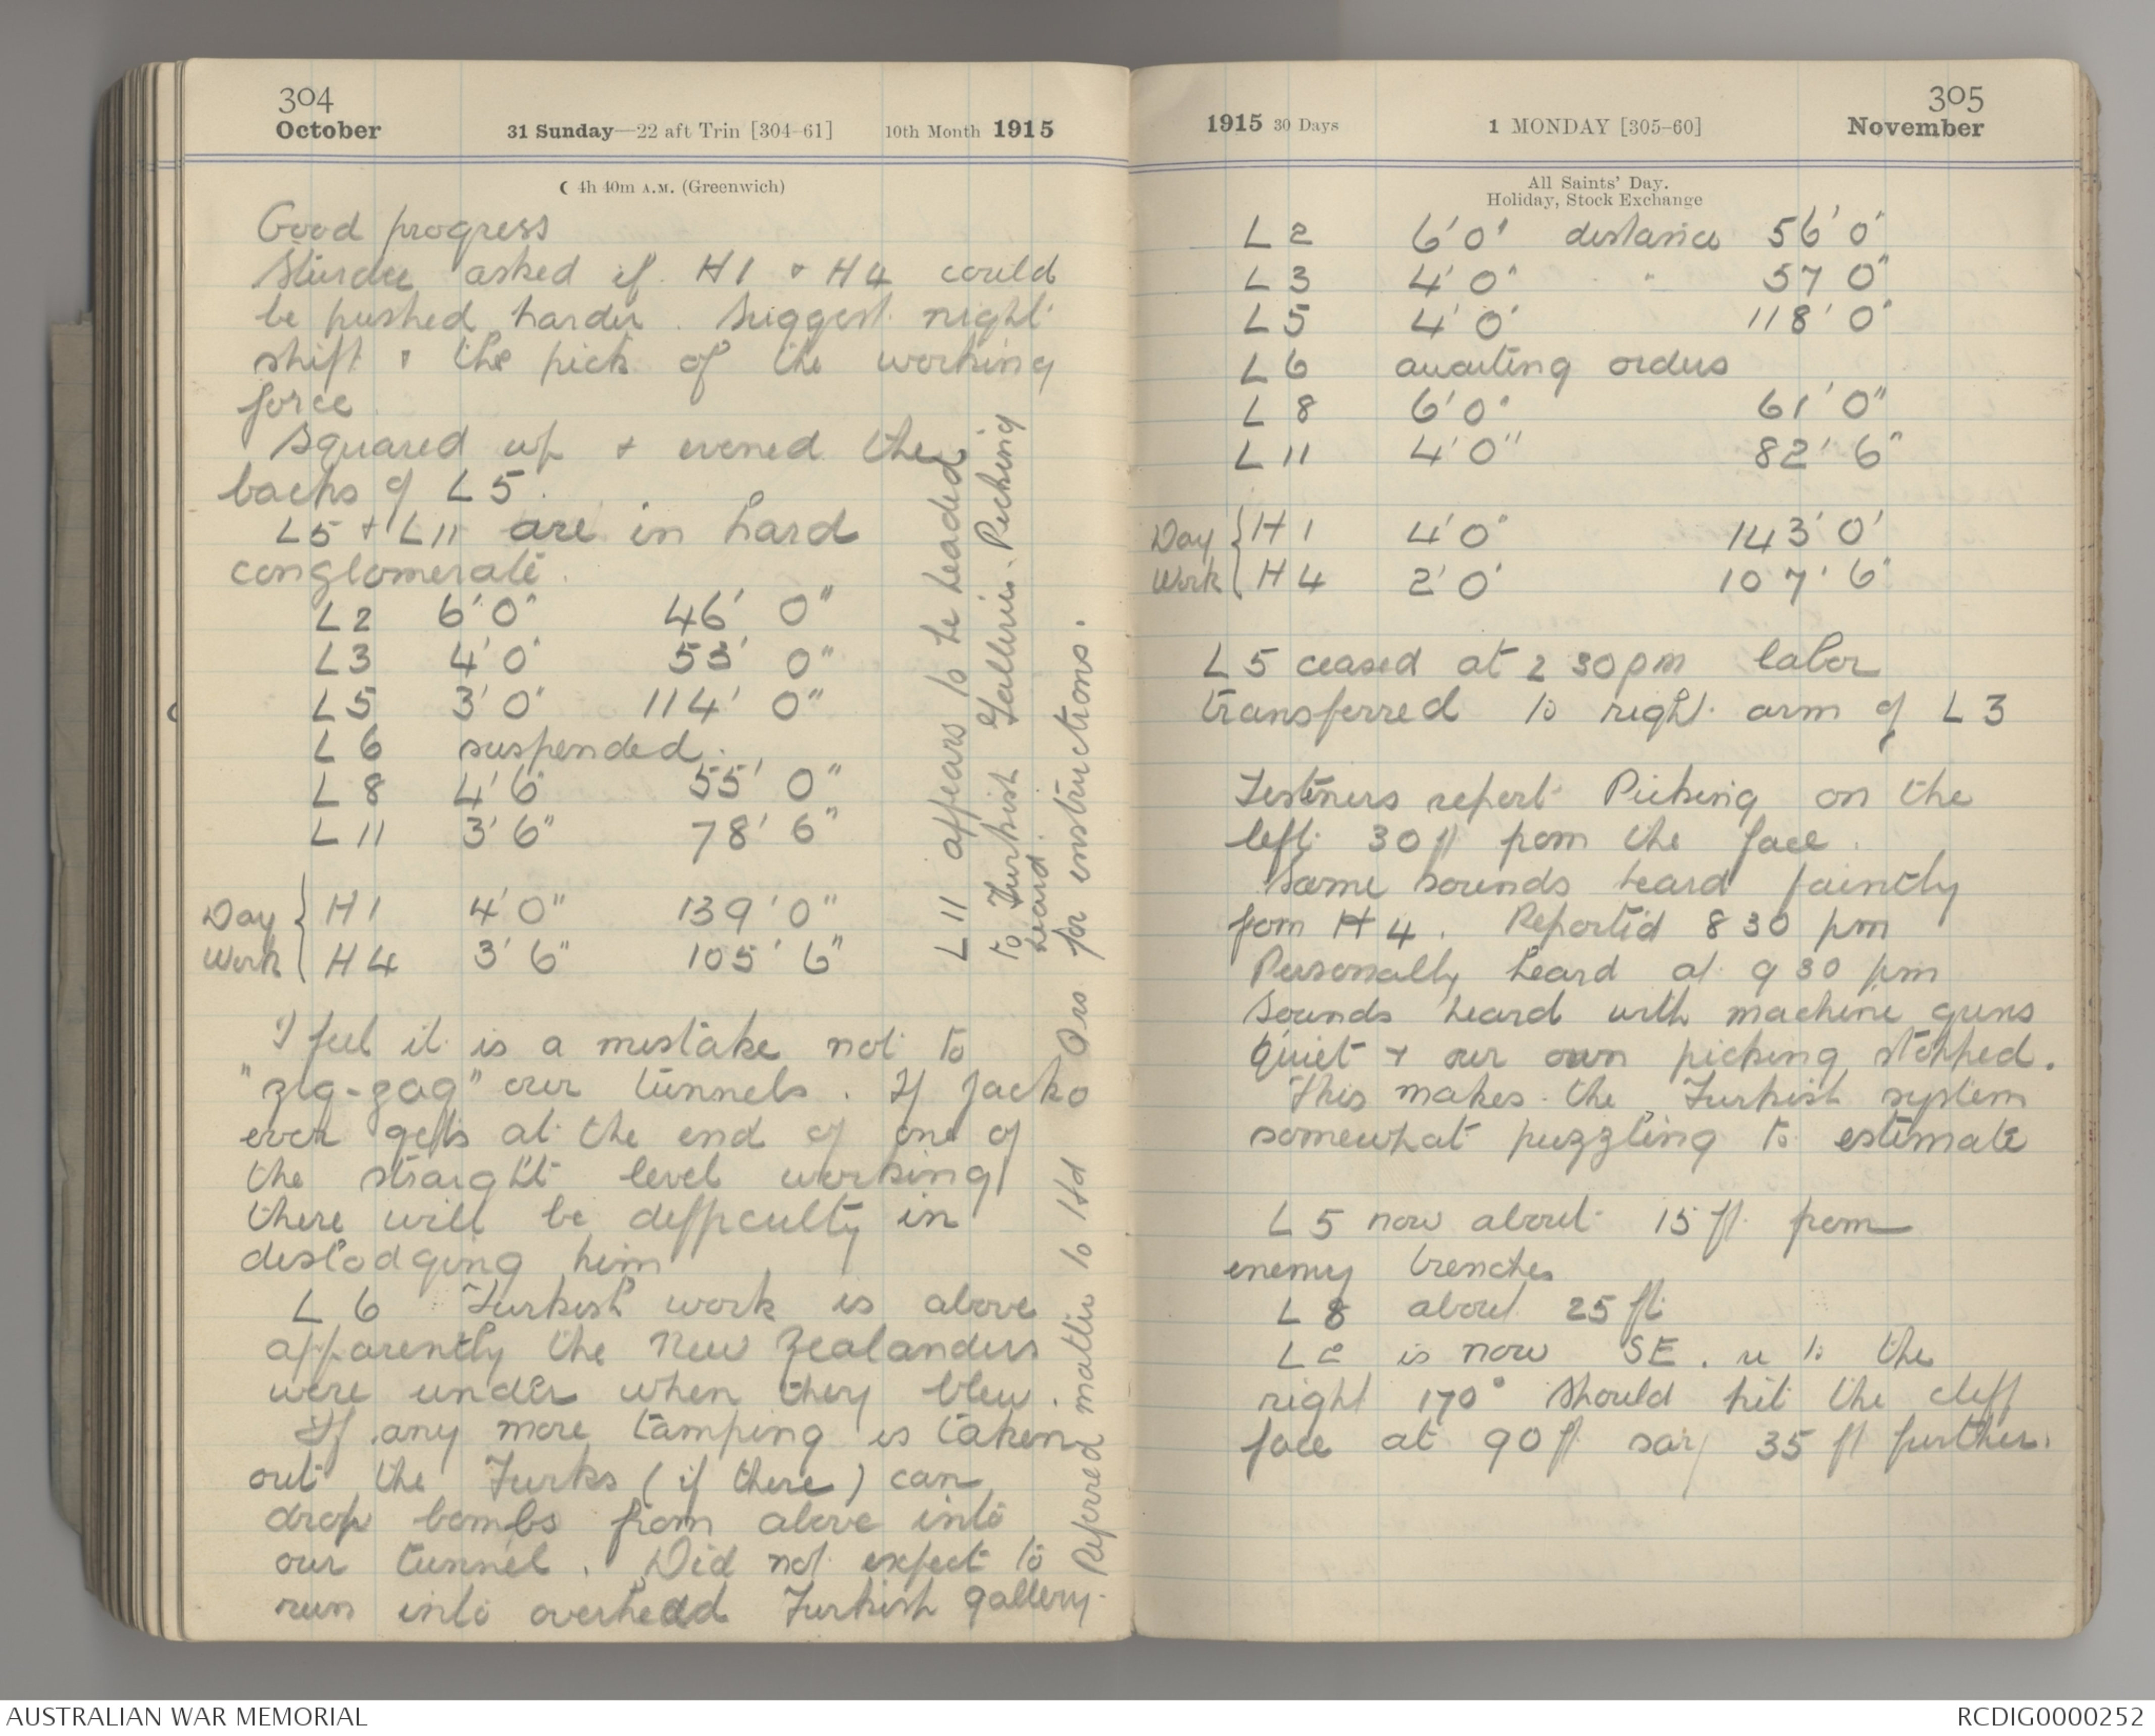 304
October 31 Sunday—22 aft Trin [304-61] 10th Month 1915
☾ 4h 40m A.M. (Greenwich)
Good progress
Sturdee asked if H1 + H4 could
be pushed harder. Suggest night
shift + the pick of the working
force
Squared up + evened the
backs of L5.
L5 + L11 are in hard
conglomerate.
L2 6'0" 46' 0"
L3 4'0" 53' 0"
L5 3'0" 114' 0"
L6 suspended.
L8 4'6" 55' 0"
L11 3'6" 78' 6"
Day Work { H1 4'0" 139'0"
H4 3'6" 105'6"
I feel it is a mistake not to
"zig-zag" our tunnels. If Jacko
ever gets at the end of one of
the straight level working
there will be difficulty in
dislodging him
L6 Turkish work is above
apparently the New Zealanders
were under when they blew.
If any more tamping is taken
out the Turks (if there) can
drop bombs from above into
our tunnel. Did not expect to
run into overhead Turkish gallery.
L11 appears to be headed
to Turkish Galleries. Picking
heard.
Referred matter to Hd Qrs for instructions.
305
1915 30 Days 1 MONDAY [305-60] November
All Saints' Day.
Holiday, Stock Exchange
L2 6'0" distance 56'0"
L3 4'0" " 57 0"
L5 4'0" 118'0"
L6 awaiting orders
L8 6'0" 61'0"
L11 4'0" 82'6"
Day Work { H1 4'0" 143'0'
H4 2'0' 107'6"
L5 ceased at 2 30pm labor
transferred to right arm of L3
Listeners report Picking on the
left 30 ft from the face.
Same sounds heard faintly
from H4. Reported 8 30 pm
Personally heard at 9 30 pm
Sounds heard with machine guns
quiet + our own picking stopped.
This makes the Turkish system
somewhat puzzling to estimate
L5 now about 15 ft from
enemy trenches
L8 about 25 ft
L2 is now SE. to the
right 170° should hit the cliff
face at 90 ft say 35 ft further.
AUSTRALIAN WAR MEMORIAL
RCDIG0000252